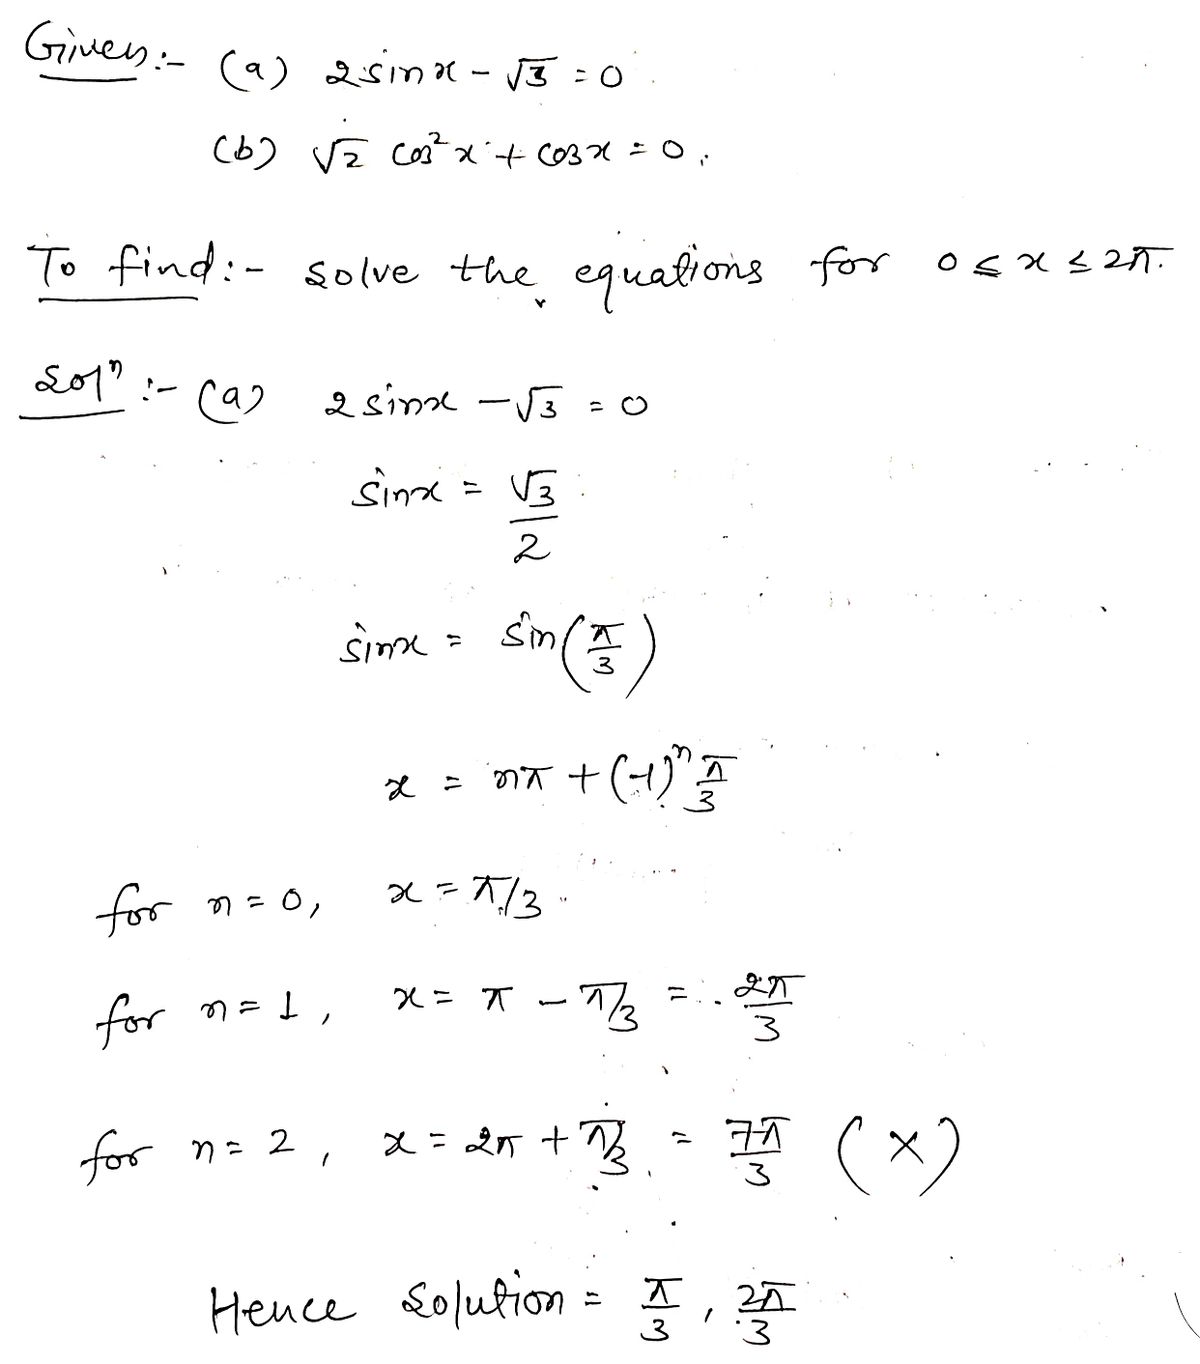 Given:- (a) 2sinx - √3 = 0
(b) √2 cos²x + cosx = 0.
To find:- solve the equations for 0 ≤ x ≤ 2π.
Solⁿ :- (a) 2 sinx - √3 = 0
sinx = √3/2
sinx = sin(π/3)
x = nπ + (-1)ⁿ π/3
for n = 0, x = π/3
for n = 1, x = π - π/3 = 2π/3
for n = 2, x = 2π + π/3 = 7π/3 (×)
Hence Solution = π/3, 2π/3